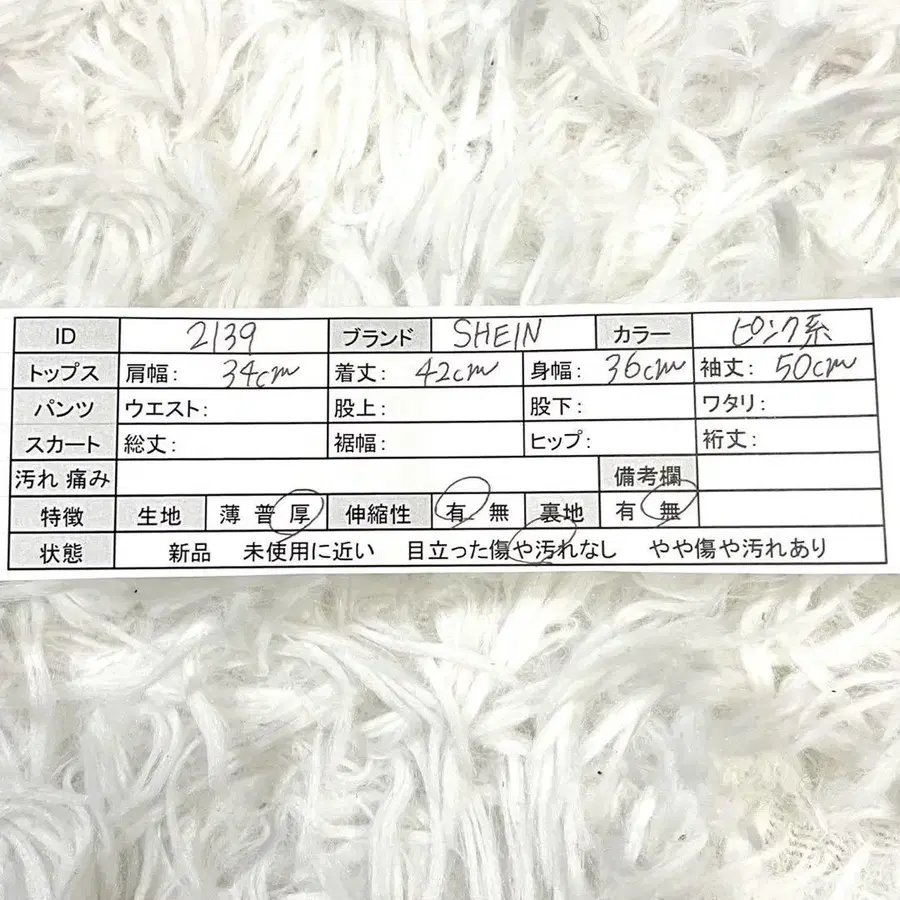 ID 2139 ブランド SHEIN カラー ピンク系
トップス 肩幅: 34cm 着丈: 42cm 身幅: 36cm 袖丈: 50cm
パンツ ウエスト: 股上: 股下: ワタリ:
スカート 総丈: 裾幅: ヒップ: 裄丈:
汚れ 痛み 備考欄
特徴 生地 薄 普 厚 伸縮性 有 無 裏地 有 無
状態 新品 未使用に近い 目立った傷や汚れなし やや傷や汚れあり